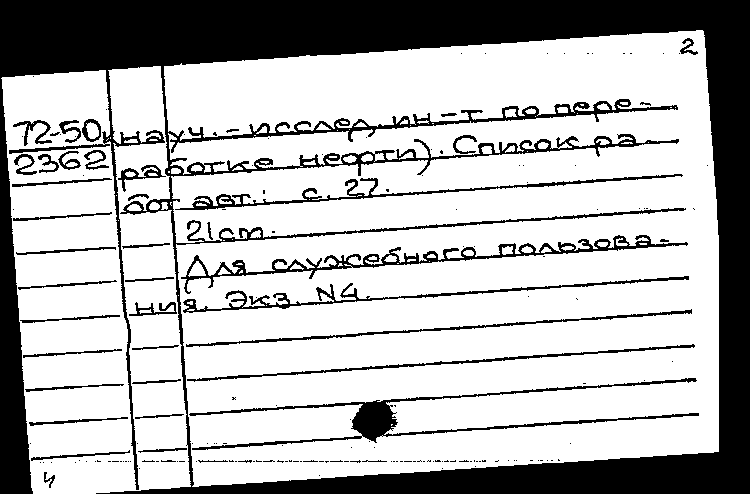 2
72-50к науч.-исслед. ин-т по пере-
2362 работке нефти). Список ра-
бот авт.: с. 27.
21cm.
Для служебного пользова-
ния. Экз. N4.
ч